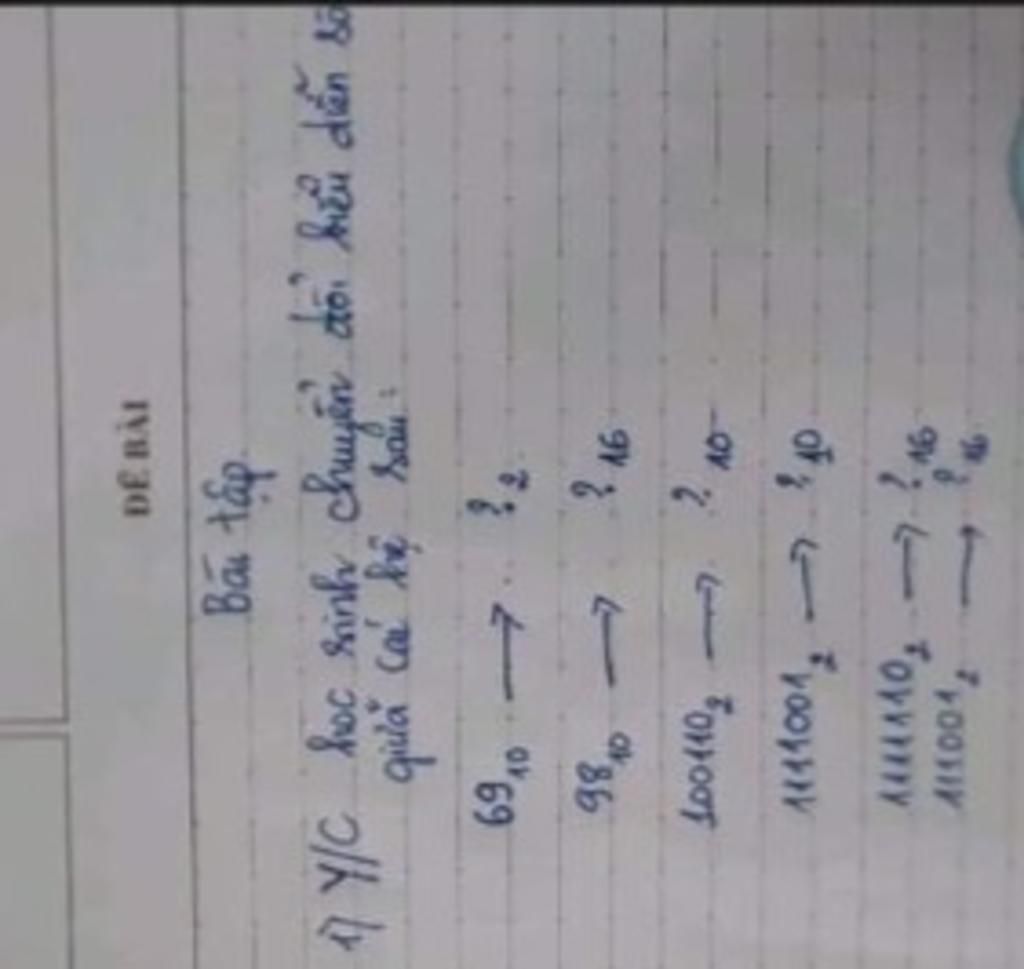 ĐỀ BÀI
Bài tập
1) Y/C học sinh chuyển đổi biểu diễn số
giữa các hệ sau:
69₁₀ → ?₂
98₁₀ → ?₁₆
100110₂ → ?₁₀
1111001₂ → ?₁₀
11111110₂ → ?₁₆
111001₂ → ?₁₆